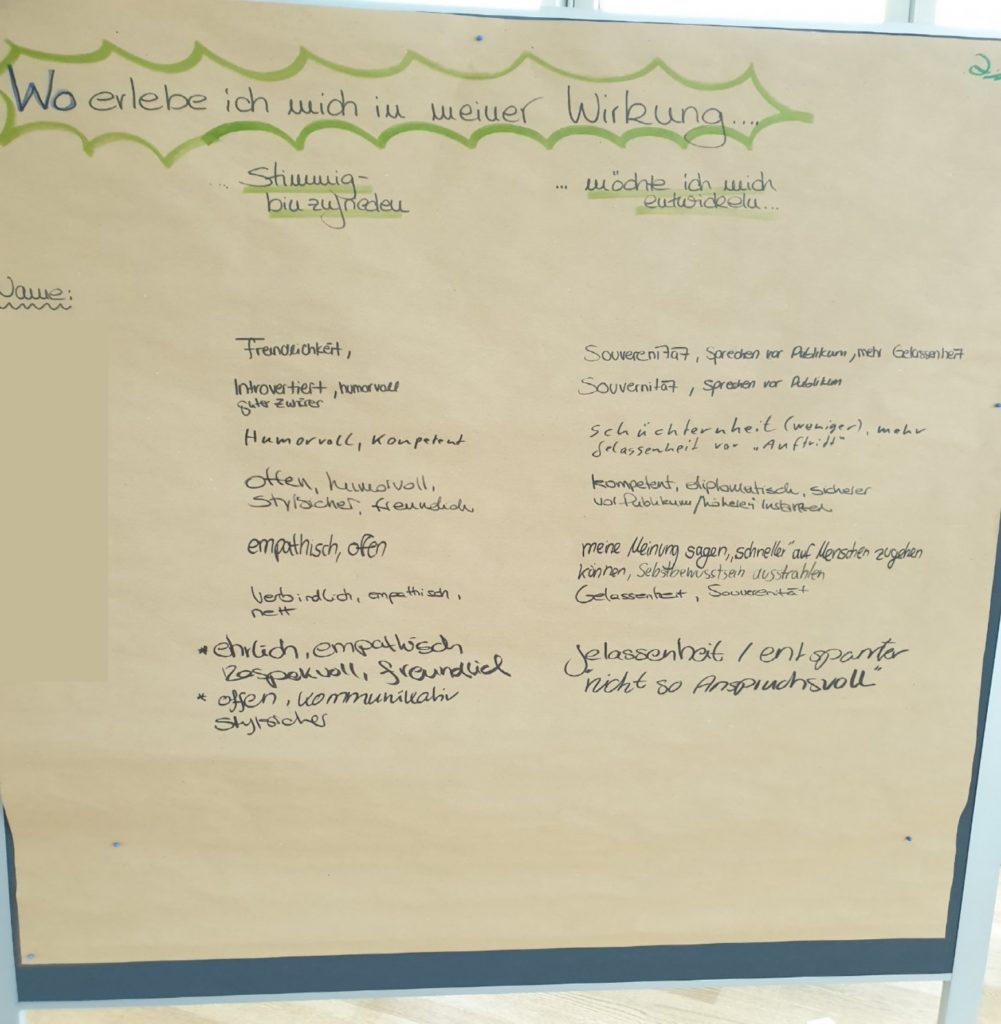 Wo erlebe ich mich in meiner Wirkung....
... Stimmig-
bin zufrieden
... möchte ich mich
entwickeln...
Name:
Freundlichkeit,
Souverenität, Sprechen vor Publikum, mehr Gelassenheit
Introvertiert, humorvoll
guter Zuhörer
Souvernität, Sprechen vor Publikum
Humorvoll, Kompetent
schüchternheit (weniger), mehr
Gelassenheit vor „Auftritt"
offen, humorvoll,
Stylsicher, freundlich
kompetent, diplomatisch, sicherer
vor Publikum/höheren Instanzen
empathisch, offen
meine Meinung sagen, „schneller" auf Menschen zugehen
können, Selbstbewusstsein ausstrahlen
Verbindlich, empathisch,
nett
Gelassenheit, Souverenität
* ehrlich, empathisch
Respekvoll, freundlich
* offen, kommunikativ
Stylsicher
Gelassenheit / entspannter
"nicht so Anspruchsvoll"